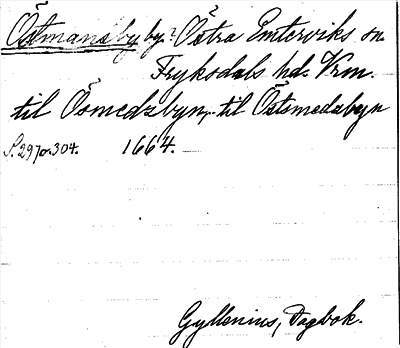 Östmansby by? Östra Emterviks sn
Fryksdals hd. Vrm.
til Ösmedzbyn, til Östsmedzbyn
S. 297 o. 304. 1664.
Gyllenius, Dagbok.